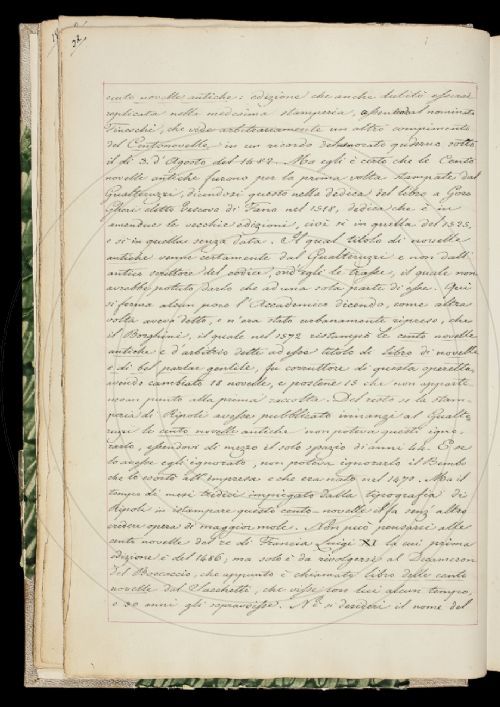 32
cento novelle antiche: edizione che anche dubitò essersi
replicata nella medesima stamperia, al nominato
Fineschi, che vede arbitrariamente un altro compimento
del Centonovelle in un ricordo del quaderno sotto
il dì 3. d'Agosto del 1482. Ma egli è certo che le Cento
novelle antiche furono per la prima volta stampate dal
Gualteruzzi, dicendosi questo nella dedica del libro a Goro
Gheri eletto Vescovo di Fano nel 1518, dedica che è in
amendue le vecchie edizioni, cioè sì in quella del 1525,
e sì in quella senza data. Il qual titolo di novelle
antiche venne certamente dal Gualteruzzi e non dall'
antico scrittore del codice, ond'egli le trasse, il quale non
avrebbe potuto darlo che ad una sola parte di esse. Qui
si ferma alcun poco l'Accademico dicendo, come altra
volta aveva detto, e n'era stato urbanamente ripreso, che
il Borghini, il quale nel 1572 ristampò le cento novelle
antiche e d'arbitrio dette ad esse titolo di libro di novelle
e di bel parlar gentile, fu corruttore di questa operetta,
avendo cambiate 18 novelle, e postene 15 che non apparte
nevan punto alla prima raccolta. Del resto se la stam-
peria di Ripoli avesse pubblicato innanzi al Gualte-
ruzzi le cento novelle antiche non poteva questi igno-
rarlo, essendovi di mezzo il solo spazio di anni 44. E se
lo avesse egli ignorato, non poteva ignorarlo il Bembo
che lo esortò all'impresa e che era nato nel 1470. Ma il
tempo de' mesi tredici impiegato dalla tipografia di
Ripoli in istampare queste cento-novelle il fa senz'altro
credere opera di maggior mole. Non può pensarsi alle
cento novelle del re di Francia Luigi XI la cui prima
edizione è del 1486; ma solo è da rivolgersi al Decameron
del Boccaccio, che appunto è chiamato libro delle cento
novelle dal Sacchetti, che visse con lui alcun tempo,
e 30 anni gli sopravvisse. Nè si desideri il nome del